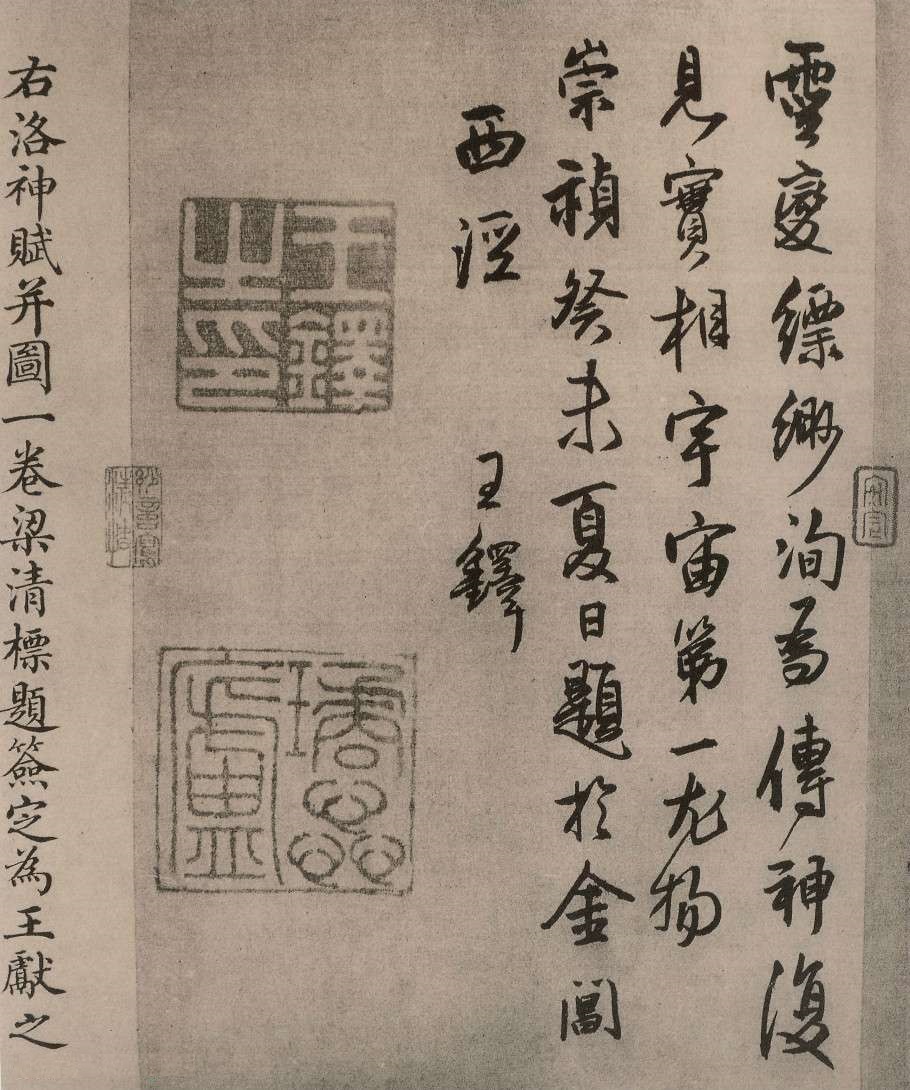 靈變縹緲洵為傳神復
見實相宇宙第一尤物
崇禎癸未夏日題於金閶
西涇 王鐸
王鐸之印
右洛神賦并圖一卷梁清標題簽定為王獻之